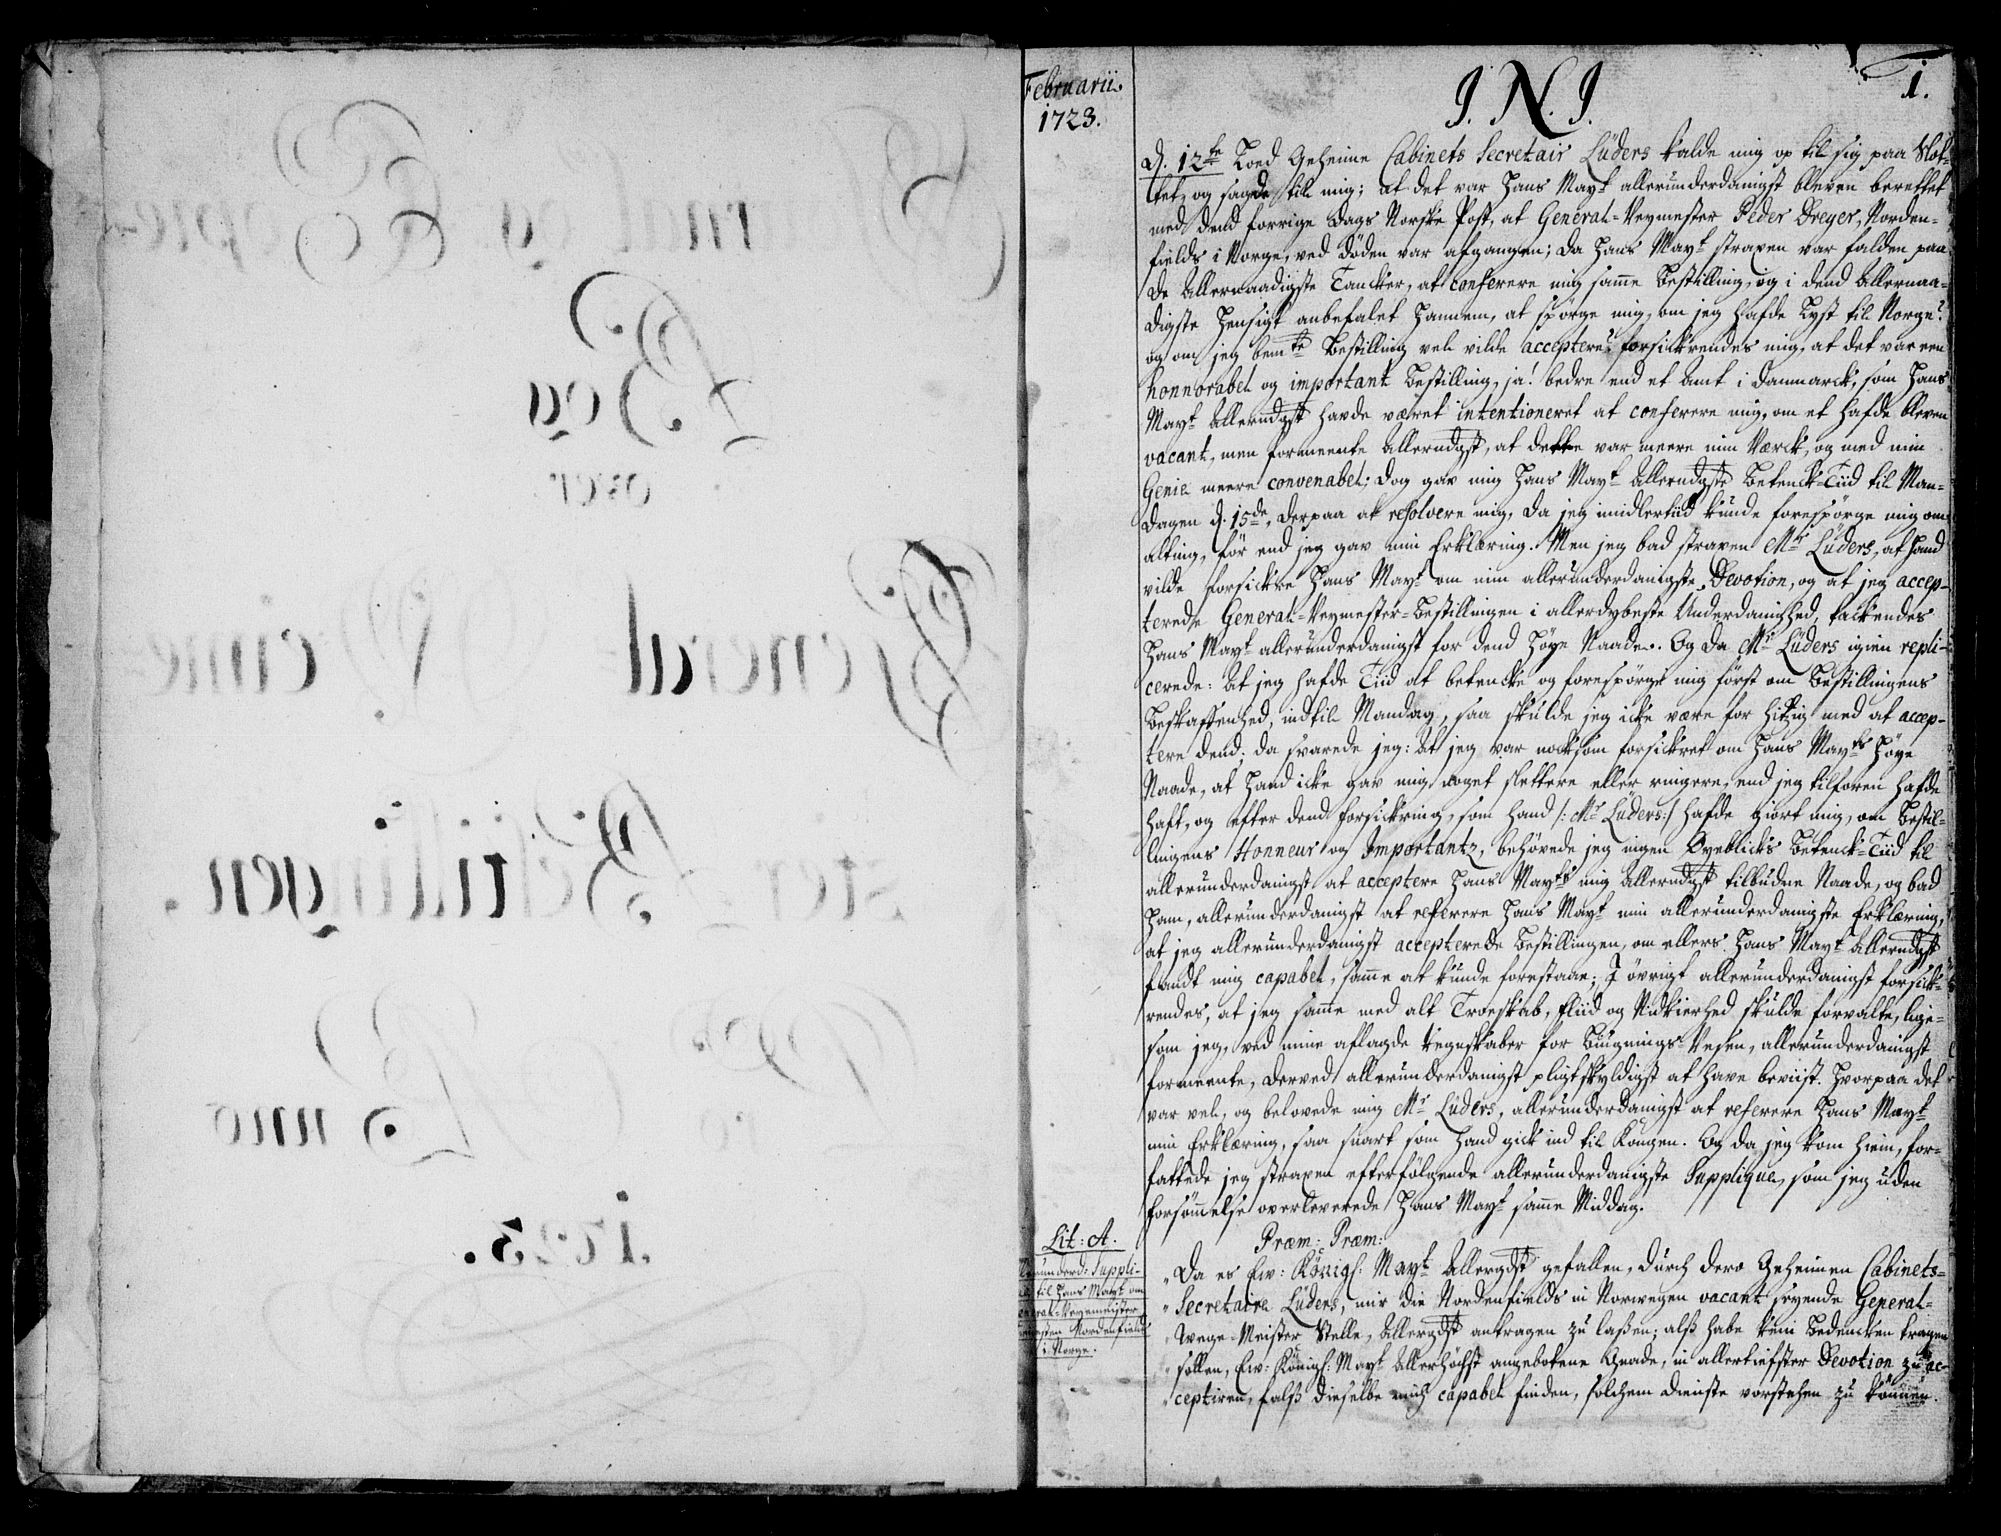 Februarii.
1723.
J. N. J.
1.
d. 12te Loed Geheime Cabinets Secretair Lüders kalde mig op til sig paa Slot-
tet, og sagde til mig; at det var Hans Mayt allerunderdanigst bleven berettet
med dend forrige Dags Norske Post, at General-Veymester Peder Dreyer, Norden-
fields i Norge, ved Döden var afgangen; da Hans Mayt straxen var falden paa
de Allernaadigste Tancker, at conferere mig samme Bestilling, og i dend Allernaa-
digste Hensigt anbefalet Hannem, at spörge mig, om jeg hafde Lyst til Norge?
og om jeg bemte Bestilling vel vilde acceptere? forsickrendes mig, at det var een
honnorabel og important Bestilling, ja! bedre end et Amt i Danmarck, som Hans
Mayt Allerndgst havde været intentioneret at conferere mig, om et hafde bleven
vacant, men formeente Allerndgst, at dette var meere min Værck, og med min
Genie meere convenabel; dog gav mig Hans Mayt Allerndgste Betenck-Tiid til Man-
dagen d. 15de, derpaa at resolvere mig, da jeg imidlertiid kunde forespörge mig om
alting, för end jeg gav min Erklæring. Men jeg bad straxen Mr Lüders, at Hand
vilde forsickre Hans Mayt om min allerunderdanigste Devotion, og at jeg accep-
terede General-Veymester-Bestillingen i allerdybeste Underdanighed, tackendes
Hans Mayt allerunderdanigst for dend Höye Naade. Og da Mr Lüders igien repli-
cerede: At jeg hafde Tiid at betencke og forespörge mig först om Bestillingens
Beskaffenhed, indtil Mandag, saa skulde jeg icke være for hitzig med at accep-
tere dend; da svarede jeg: At jeg var nocksom forsickret om Hans Mayts Höye
Naade, at Hand icke gav mig noget slettere eller ringere, end jeg tilforen hafde
haft, og efter dend forsickring, som hand /: Mr Lüders:/ hafde giort mig, om Bestil-
lingens Honneur og Importantz, behövede jeg ingen Öyeblicks Betenck-Tiid til
allerunderdanigst at acceptere Hans Mayts mig Allerndgst tilbudne Naade, og bad
Ham, allerunderdanigst at referere Hans Mayt min allerunderdanigste Erklæring,
at jeg allerunderdanigst accepterede Bestillingen, om ellers Hans Mayt Allerndgst
fandt mig capabel, samme at kunde forestaae; I övrigt allerunderdanigst forsick-
rendes, at jeg samme med alt Troeskab, Fliid og Nidkierhed skulde forvalte, lige-
som jeg, ved mine aflagde Regnskaber for Bÿgnings-Vesen, allerunderdanigst
formeente, derved allerunderdanigst pligtskyldigst at have beviist. Hvorpaa det
var vel, og belovede mig Mr Lüders, allerunderdanigst at referere Hans Mayt
min Erklæring, saa snart som hand gick ind til Kongen. Og da jeg kom hiem, for-
fattede jeg straxen efterfölgende allerunderdanigste Supplique, som jeg uden
forsömmelse overleverede Hans Mayt samme Middag.
Lit: A.
allerunderd: Suppli-
til Hans Mayt om
General-Vegemeister
Nordenfields
i Norge.
Præm: Præm:
"Da es Ew: Königl. Mayt Allergdst gefallen, durch dero Geheimen Cabinets-
"Secretaire Lüders, mir die Nordenfields in Norwegen vacant seyende General-
"Wege-Meister Stelle, Allergdst antragen zu laßen; alß habe kein Bedencken tragen
"sollen, Ew: Königl: Mayt Allerhöchst angebotene Gnade, in allertiefster Devotion zu ac-
"ceptiren, falß dieselbe mich capabel finden, solchem Dienste vorstehen zu können.